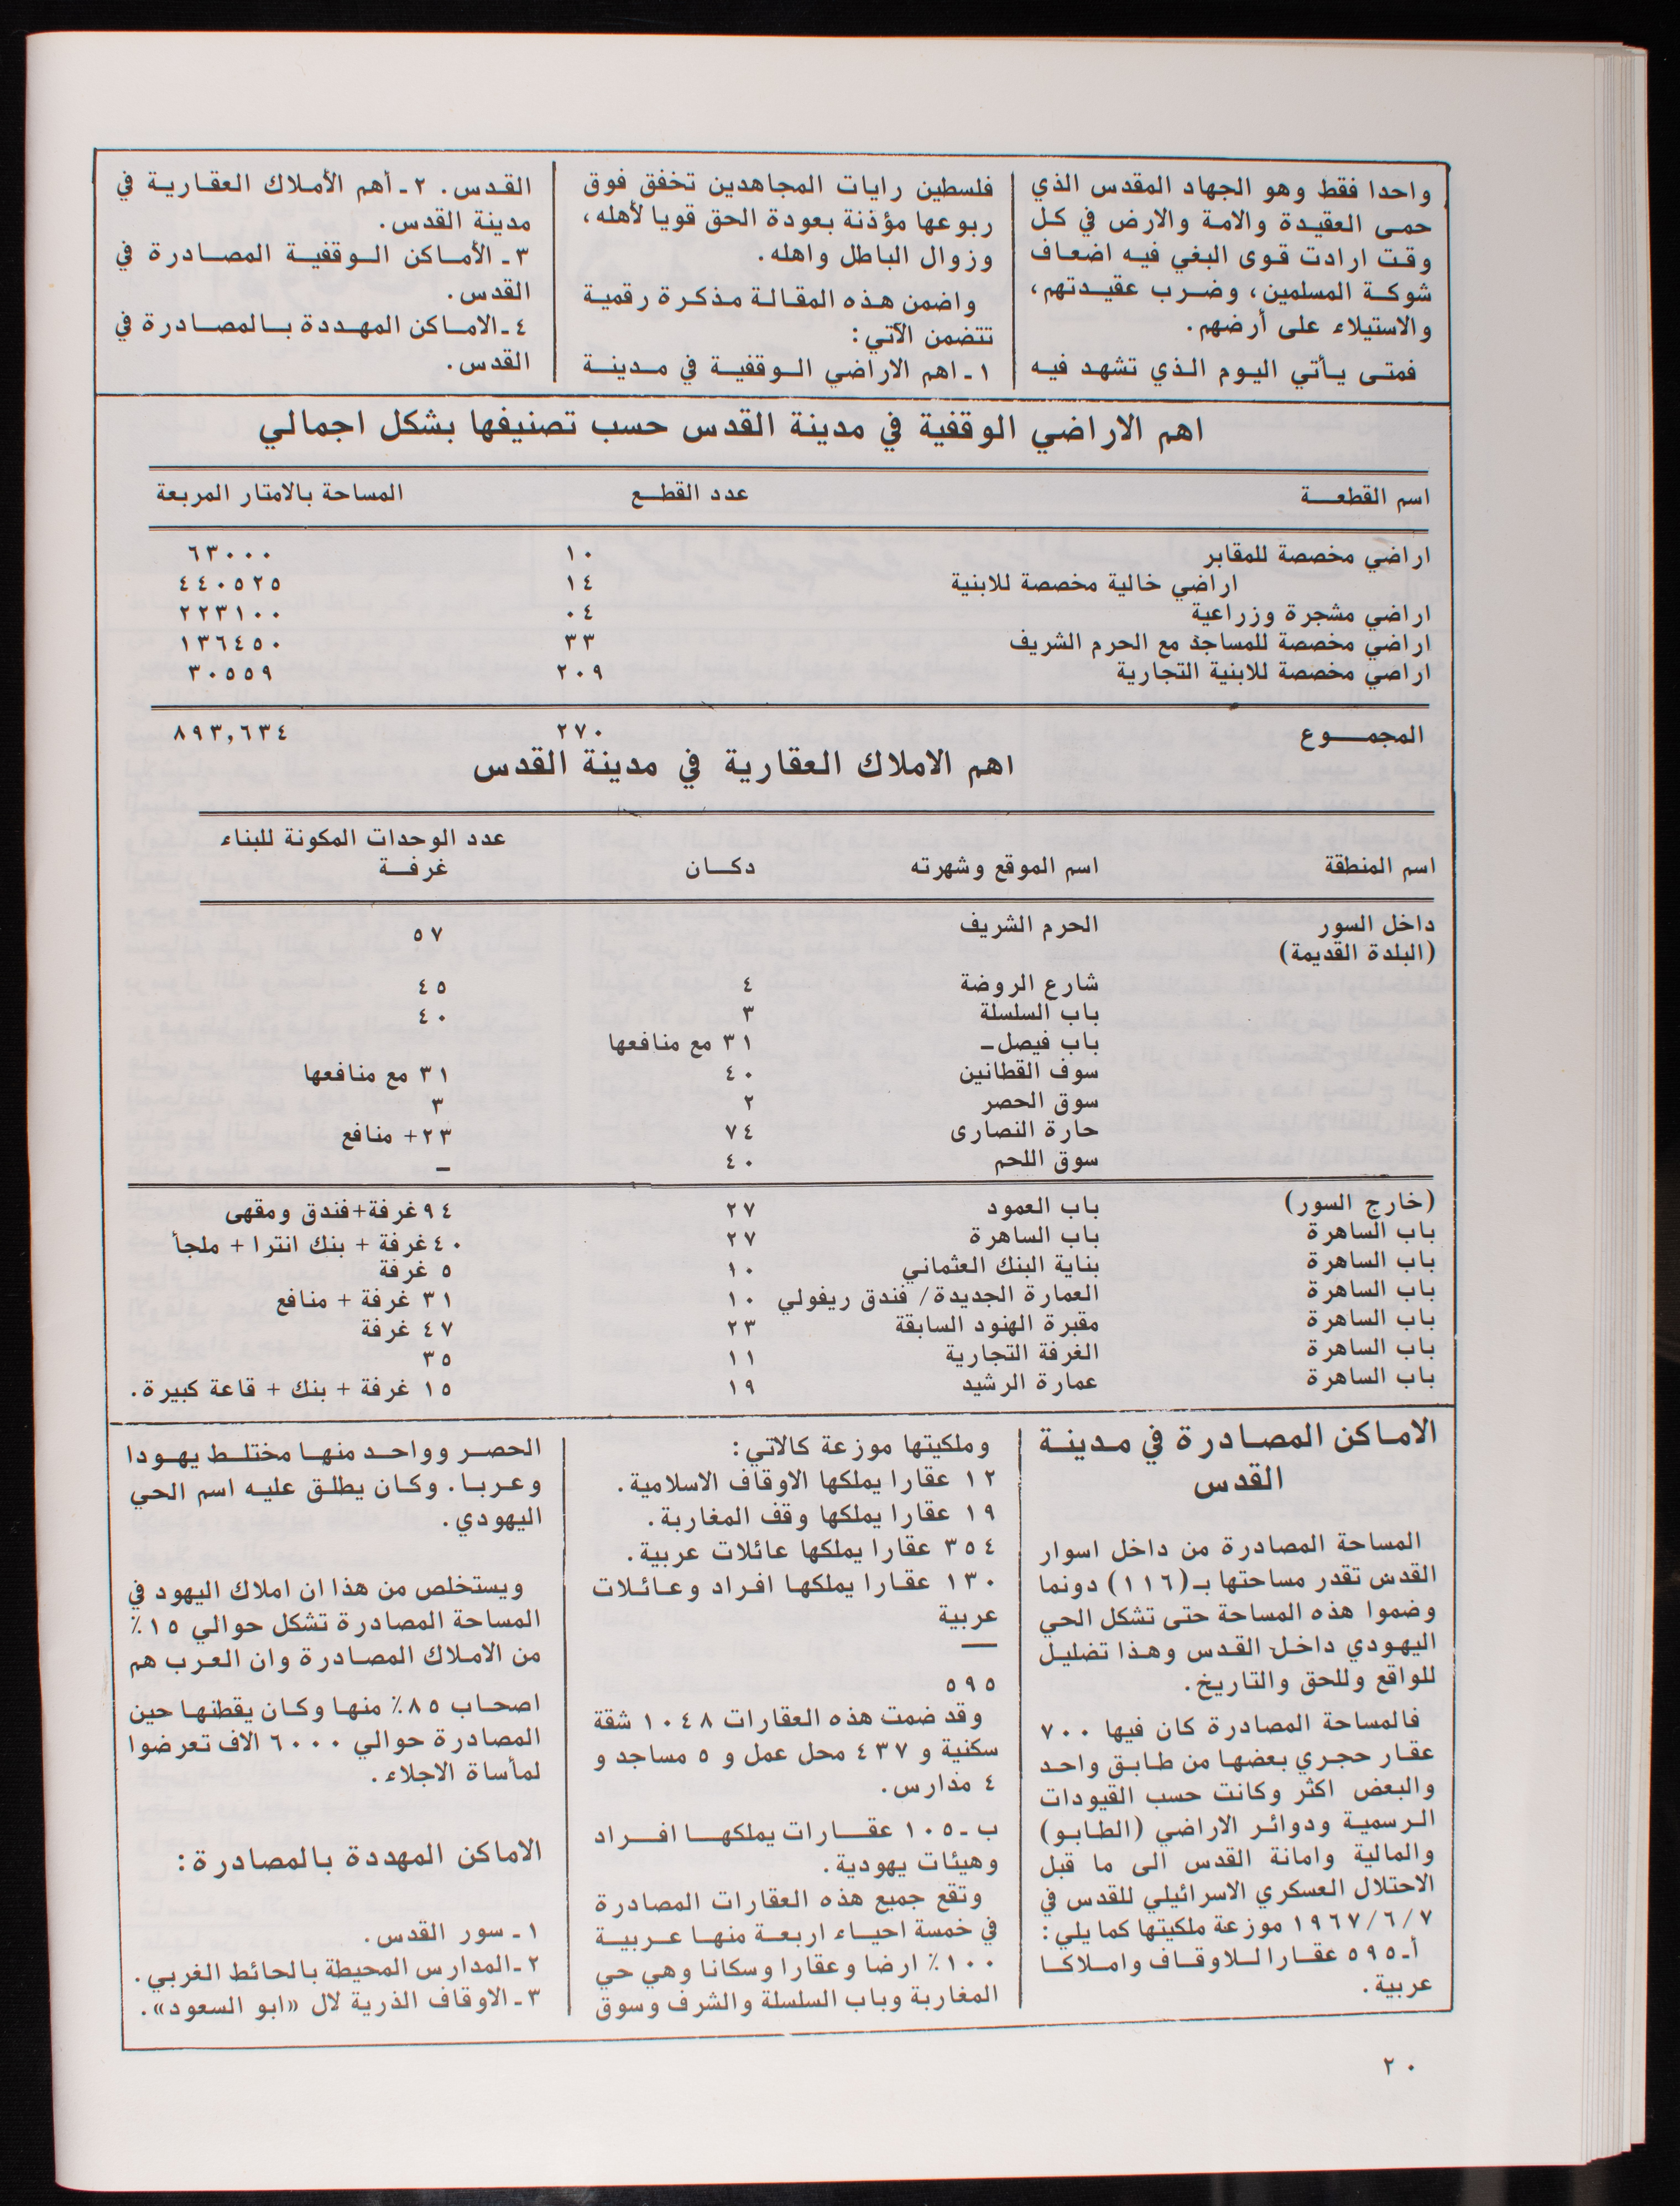 واحدا فقط وهو الجهاد المقدس الذي
حمى العقيدة والامة والارض في كل
وقت ارادت قوى البغي فيه اضعاف
شوكة المسلمين، وضرب عقيدتهم،
والاستيلاء على أرضهم.
فمتى يأتي اليوم الذي تشهد فيه
فلسطين رايات المجاهدين تخفق فوق
ربوعها مؤذنة بعودة الحق قويا لأهله،
وزوال الباطل واهله.
واضمن هذه المقالة مذكرة رقمية
تتضمن الآتي:
١ـ اهم الاراضي الوقفية في مدينة
القدس. ٢ـ أهم الأملاك العقارية في
مدينة القدس.
٣ـ الأماكن الوقفية المصادرة في
القدس.
٤ـ الاماكن المهددة بالمصادرة في
القدس.
اهم الاراضي الوقفية في مدينة القدس حسب تصنيفها بشكل اجمالي
اسم القطعة عدد القطع المساحة بالامتار المربعة
اراضي مخصصة للمقابر ١٠ ٦٣٠٠٠
اراضي خالية مخصصة للابنية ١٤ ٤٤٠٥٢٥
اراضي مشجرة وزراعية ٠٤ ٢٢٣١٠٠
اراضي مخصصة للمساجد مع الحرم الشريف ٣٣ ١٣٦٤٥٠
اراضي مخصصة للابنية التجارية ٢٠٩ ٣٠٥٥٩
المجموع ٢٧٠ ٨٩٣,٦٣٤
اهم الاملاك العقارية في مدينة القدس
عدد الوحدات المكونة للبناء
اسم المنطقة اسم الموقع وشهرته دكان غرفة
داخل السور الحرم الشريف ٥٧
(البلدة القديمة)
شارع الروضة ٤ ٤٥
باب السلسلة ٣ ٤٠
باب فيصل ـ ٣١ مع منافعها
سوف القطانين ٤٠ ٣١ مع منافعها
سوق الحصر ٢ ٣
حارة النصارى ٧٤ ٢٣+ منافع
سوق اللحم ٤٠ ـ
(خارج السور) باب العمود ٢٧ ٩٤غرفة+فندق ومقهى
باب الساهرة باب الساهرة ٢٧ ٤٠غرفة + بنك انترا + ملجأ
باب الساهرة بناية البنك العثماني ١٠ ٥ غرفة
باب الساهرة العمارة الجديدة/ فندق ريفولي ١٠ ٣١ غرفة + منافع
باب الساهرة مقبرة الهنود السابقة ٢٣ ٤٧ غرفة
باب الساهرة الغرفة التجارية ١١ ٣٥
باب الساهرة عمارة الرشيد ١٩ ١٥ غرفة + بنك + قاعة كبيرة.
الاماكن المصادرة في مدينة
القدس
المساحة المصادرة من داخل اسوار
القدس تقدر مساحتها بـ(١١٦) دونما
وضموا هذه المساحة حتى تشكل الحي
اليهودي داخل القدس وهذا تضليل
للواقع وللحق والتاريخ.
فالمساحة المصادرة كان فيها ٧٠٠
عقار حجري بعضها من طابق واحد
والبعض اكثر وكانت حسب القيودات
الرسمية ودوائر الاراضي (الطابو)
والمالية وامانة القدس الى ما قبل
الاحتلال العسكري الاسرائيلي للقدس في
١٩٦٧/٦/٧ موزعة ملكيتها كما يلي:
أـ ٥٩٥ عقارا للاوقاف واملاكا
عربية.
وملكيتها موزعة كالاتي:
١٢ عقارا يملكها الاوقاف الاسلامية.
١٩ عقارا يملكها وقف المغاربة.
٣٥٤ عقارا يملكها عائلات عربية.
١٣٠ عقارا يملكها افراد وعائلات
عربية
—
٥٩٥
وقد ضمت هذه العقارات ١٠٤٨ شقة
سكنية و ٤٣٧ محل عمل و ٥ مساجد و
٤ مدارس.
ب ـ ١٠٥ عقارات يملكها افراد
وهيئات يهودية.
وتقع جميع هذه العقارات المصادرة
في خمسة احياء اربعة منها عربية
١٠٠٪ ارضا وعقارا وسكانا وهي حي
المغاربة وباب السلسلة والشرف وسوق
الحصر وواحد منها مختلط يهودا
وعربا. وكان يطلق عليه اسم الحي
اليهودي.
ويستخلص من هذا ان املاك اليهود في
المساحة المصادرة تشكل حوالي ١٥٪
من الاملاك المصادرة وان العرب هم
اصحاب ٨٥٪ منها وكان يقطنها حين
المصادرة حوالي ٦٠٠٠ الاف تعرضوا
لمأساة الاجلاء.
الاماكن المهددة بالمصادرة:
١ـ سور القدس.
٢ـ المدارس المحيطة بالحائط الغربي.
٣ـ الاوقاف الذرية لال «ابو السعود».
٢٠